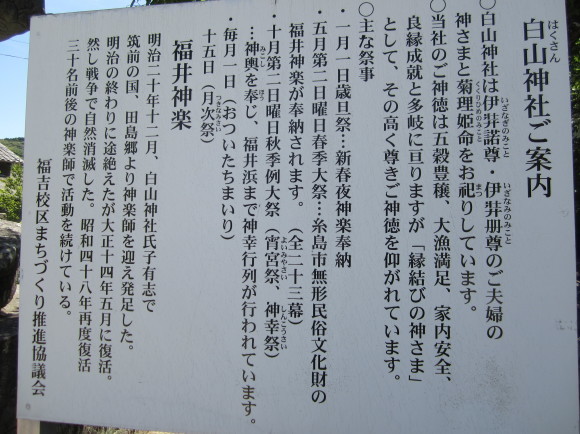 白山神社ご案内
はくさん
○白山神社は伊弉諾尊・伊弉册尊のご夫婦の
いざなぎのみこと いざなみのみこと
神さまと菊理姫命をお祀りしています。
くくりひめのみこと まつ
○当社のご神徳は五穀豊穣、大漁満足、家内安全、
良縁成就と多岐に亘りますが「縁結びの神さま」
として、その高く尊きご神徳を仰がれています。
○主な祭事
・一月一日歳旦祭…新春夜神楽奉納
・五月第二日曜日春季大祭…糸島市無形民俗文化財の
福井神楽が奉納されます。（全二十三幕）
・十月第二日曜日秋季例大祭（宵宮祭、神幸祭）
よいみやさい しんこうさい
…神輿を奉じ、福井浜まで神幸行列が行われています。
みこし ほう
・毎月一日（おついたちまいり）
十五日（月次祭）
つきなみさい
福井神楽
明治二十年十二月、白山神社氏子有志で
筑前の国、田島郷より神楽師を迎え発足した。
明治の終わりに途絶えたが大正十四年五月に復活。
然し戦争で自然消滅した。昭和四十八年再度復活
三十名前後の神楽師で活動を続けている。
福吉校区まちづくり推進協議会